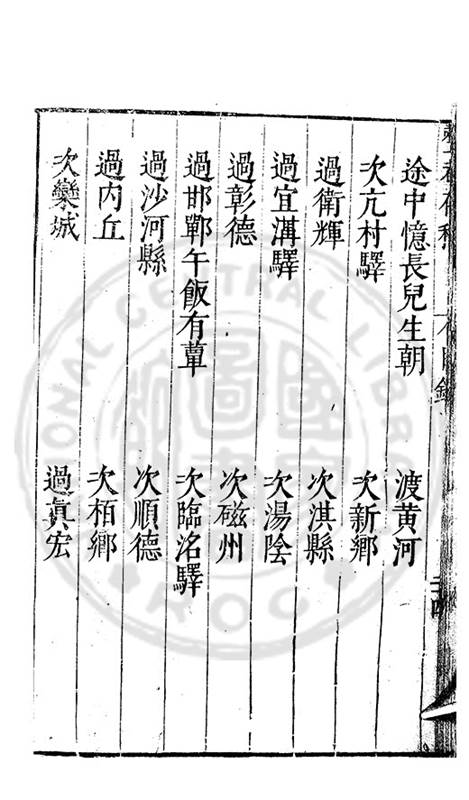 途中憶長兒生朝 渡黄河
次亢村驛 次新鄉
過衛輝 次淇縣
過宜溝驛 次湯陰
過彰德 次磁州
過邯鄲午飯有蕈 次臨洺驛
過沙河縣 次順德
過内丘 次栢鄉
次欒城 過真宏